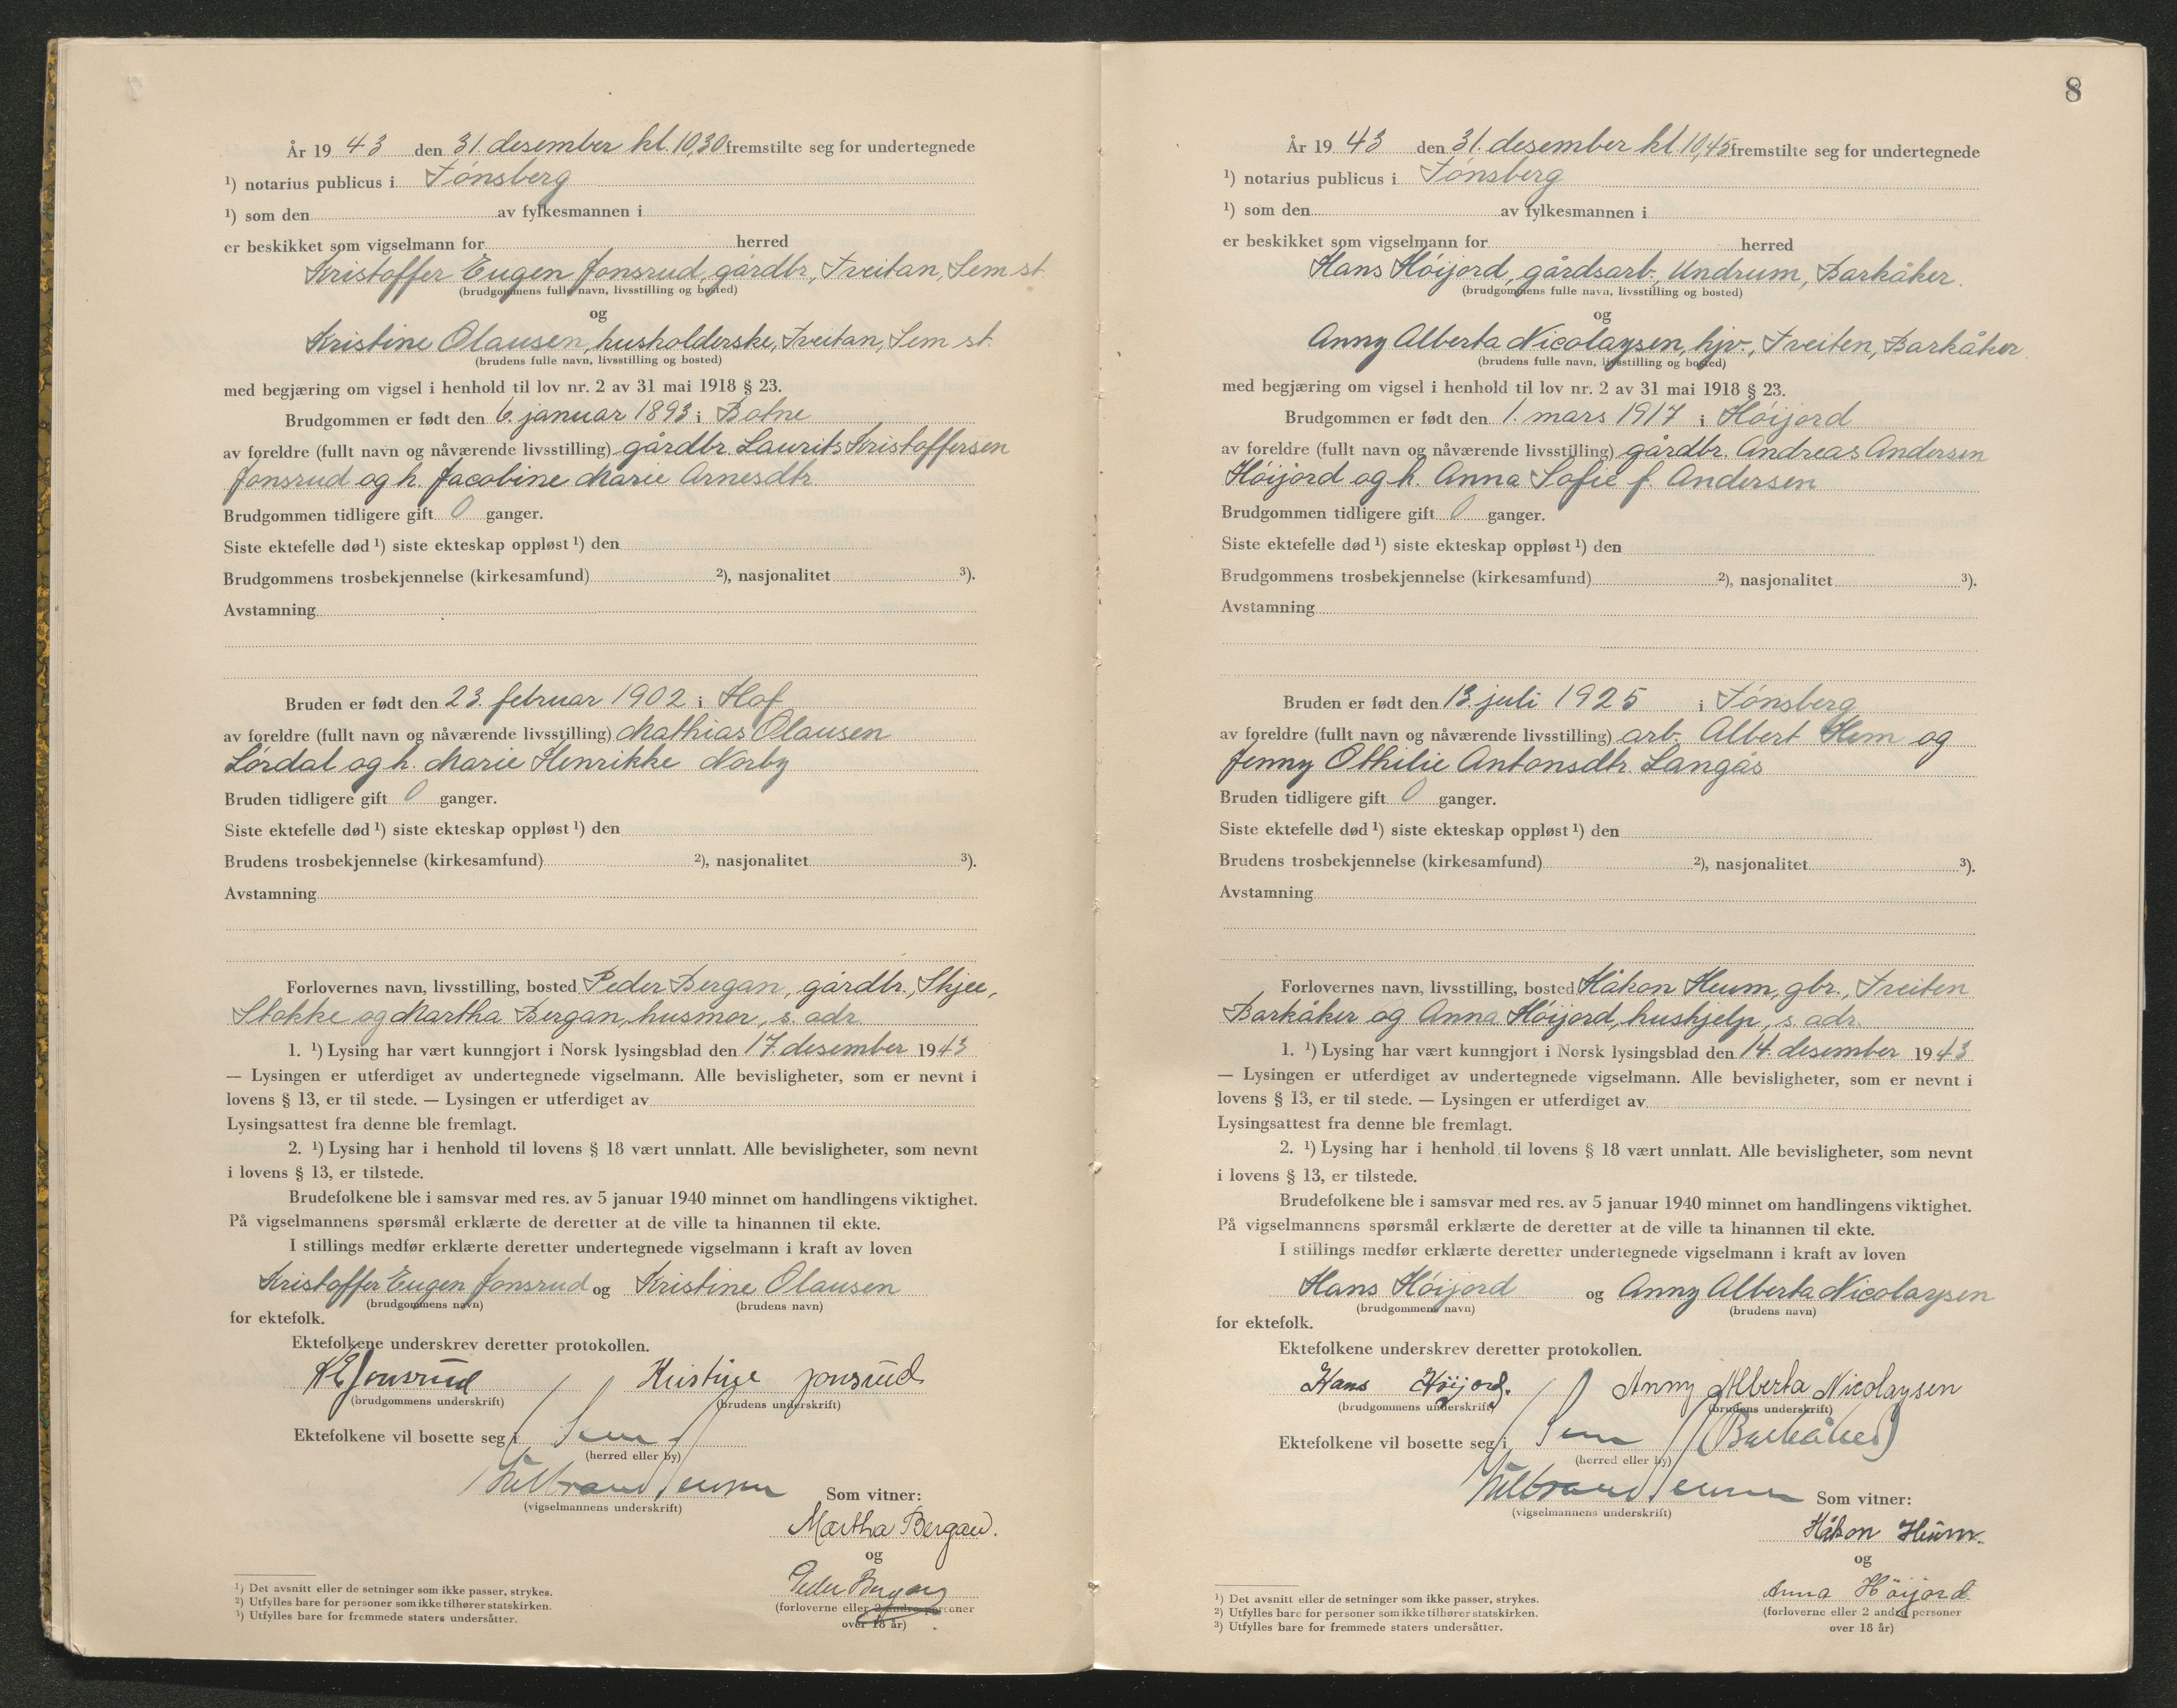 År 1943 den 31. desember kl. 10,30 fremstilte seg for undertegnede
¹) notarius publicus i Tønsberg
¹) som den av fylkesmannen i
er beskikket som vigselmann for herred
Kristoffer Eugen Jonsrud, gårdbr., Treitan, Sem st.
(brudgommens fulle navn, livsstilling og bosted)
og
Kristine Olausen, husholderske, Treitan, Sem st.
(brudens fulle navn, livsstilling og bosted)
med begjæring om vigsel i henhold til lov nr. 2 av 31 mai 1918 § 23.
Brudgommen er født den 6. januar 1893 i Botne
av foreldre (fullt navn og nåværende livsstilling) gårdbr. Laurits Kristoffersen
Jonsrud og h. Jacobine Marie Arnesdtr.
Brudgommen tidligere gift 0 ganger.
Siste ektefelle død ¹) siste ekteskap oppløst ¹) den
Brudgommens trosbekjennelse (kirkesamfund) ²), nasjonalitet ³).
Avstamning
Bruden er født den 23. februar 1902 i Hof
av foreldre (fullt navn og nåværende livsstilling) Mathias Olausen
Lørdal og h. Marie Henrikke Norby
Bruden tidligere gift 0 ganger.
Siste ektefelle død ¹) siste ekteskap oppløst ¹) den
Brudens trosbekjennelse (kirkesamfund) ²), nasjonalitet ³).
Avstamning
Forlovernes navn, livsstilling, bosted Peder Bergan, gårdbr., Skjee,
Stokke og Martha Bergan, husmor, s. adr.
1. ¹) Lysing har vært kunngjort i Norsk lysingsblad den 17. desember 1943
— Lysingen er utferdiget av undertegnede vigselmann. Alle bevisligheter, som er nevnt i
lovens § 13, er til stede. — Lysingen er utferdiget av
Lysingsattest fra denne ble fremlagt.
2. ¹) Lysing har i henhold til lovens § 18 vært unnlatt. Alle bevisligheter, som nevnt
i lovens § 13, er tilstede.
Brudefolkene ble i samsvar med res. av 5 januar 1940 minnet om handlingens viktighet.
På vigselmannens spørsmål erklærte de deretter at de ville ta hinannen til ekte.
I stillings medfør erklærte deretter undertegnede vigselmann i kraft av loven
Kristoffer Eugen Jonsrud og Kristine Olausen
(brudgommens navn) (brudens navn)
for ektefolk.
Ektefolkene underskrev deretter protokollen.
K E Jonsrud Kristine Jonsrud
(brudgommens underskrift) (brudens underskrift)
Ektefolkene vil bosette seg i Sem
(herred eller by)
Som vitner:
(vigselmannens underskrift)
Martha Bergan.
og
Peder Bergan
(forloverne eller 2 andre personer
over 18 år)
¹) Det avsnitt eller de setninger som ikke passer, strykes.
²) Utfylles bare for personer som ikke tilhører statskirken.
³) Utfylles bare for fremmede staters undersåtter.
8
År 1943 den 31. desember kl. 10,45 fremstilte seg for undertegnede
¹) notarius publicus i Tønsberg
¹) som den av fylkesmannen i
er beskikket som vigselmann for herred
Hans Höijord, gårdsarb., Undrum, Barkåker.
(brudgommens fulle navn, livsstilling og bosted)
og
Anny Alberta Nicolaysen, hjv., Treiten, Barkåker
(brudens fulle navn, livsstilling og bosted)
med begjæring om vigsel i henhold til lov nr. 2 av 31 mai 1918 § 23.
Brudgommen er født den 1. mars 1917 i Höijord
av foreldre (fullt navn og nåværende livsstilling) gårdbr. Andreas Andersen
Höijord og h. Anna Sofie f. Andersen
Brudgommen tidligere gift 0 ganger.
Siste ektefelle død ¹) siste ekteskap oppløst ¹) den
Brudgommens trosbekjennelse (kirkesamfund) ²), nasjonalitet ³).
Avstamning
Bruden er født den 13. juli 1925 i Tønsberg
av foreldre (fullt navn og nåværende livsstilling) arb. Albert Hem og
Jenny Othilie Antonsdtr. Langås
Bruden tidligere gift 0 ganger.
Siste ektefelle død ¹) siste ekteskap oppløst ¹) den
Brudens trosbekjennelse (kirkesamfund) ²), nasjonalitet ³).
Avstamning
Forlovernes navn, livsstilling, bosted Håkon Heum, gbr., Treiten
Barkåker og Anna Höijord, hushjelp, s. adr.
1. ¹) Lysing har vært kunngjort i Norsk lysingsblad den 14. desember 1943
— Lysingen er utferdiget av undertegnede vigselmann. Alle bevisligheter, som er nevnt i
lovens § 13, er til stede. — Lysingen er utferdiget av
Lysingsattest fra denne ble fremlagt.
2. ¹) Lysing har i henhold til lovens § 18 vært unnlatt. Alle bevisligheter, som nevnt
i lovens § 13, er tilstede.
Brudefolkene ble i samsvar med res. av 5 januar 1940 minnet om handlingens viktighet.
På vigselmannens spørsmål erklærte de deretter at de ville ta hinannen til ekte.
I stillings medfør erklærte deretter undertegnede vigselmann i kraft av loven
Hans Höijord og Anny Alberta Nicolaysen
(brudgommens navn) (brudens navn)
for ektefolk.
Ektefolkene underskrev deretter protokollen.
Hans Höijord. Anny Alberta Nicolaysen
(brudgommens underskrift) (brudens underskrift)
Ektefolkene vil bosette seg i Sem (Barkåker)
(herred eller by)
Som vitner:
(vigselmannens underskrift)
Håkon Heum.
og
Anna Höijord.
(forloverne eller 2 andre personer
over 18 år)
¹) Det avsnitt eller de setninger som ikke passer, strykes.
²) Utfylles bare for personer som ikke tilhører statskirken.
³) Utfylles bare for fremmede staters undersåtter.